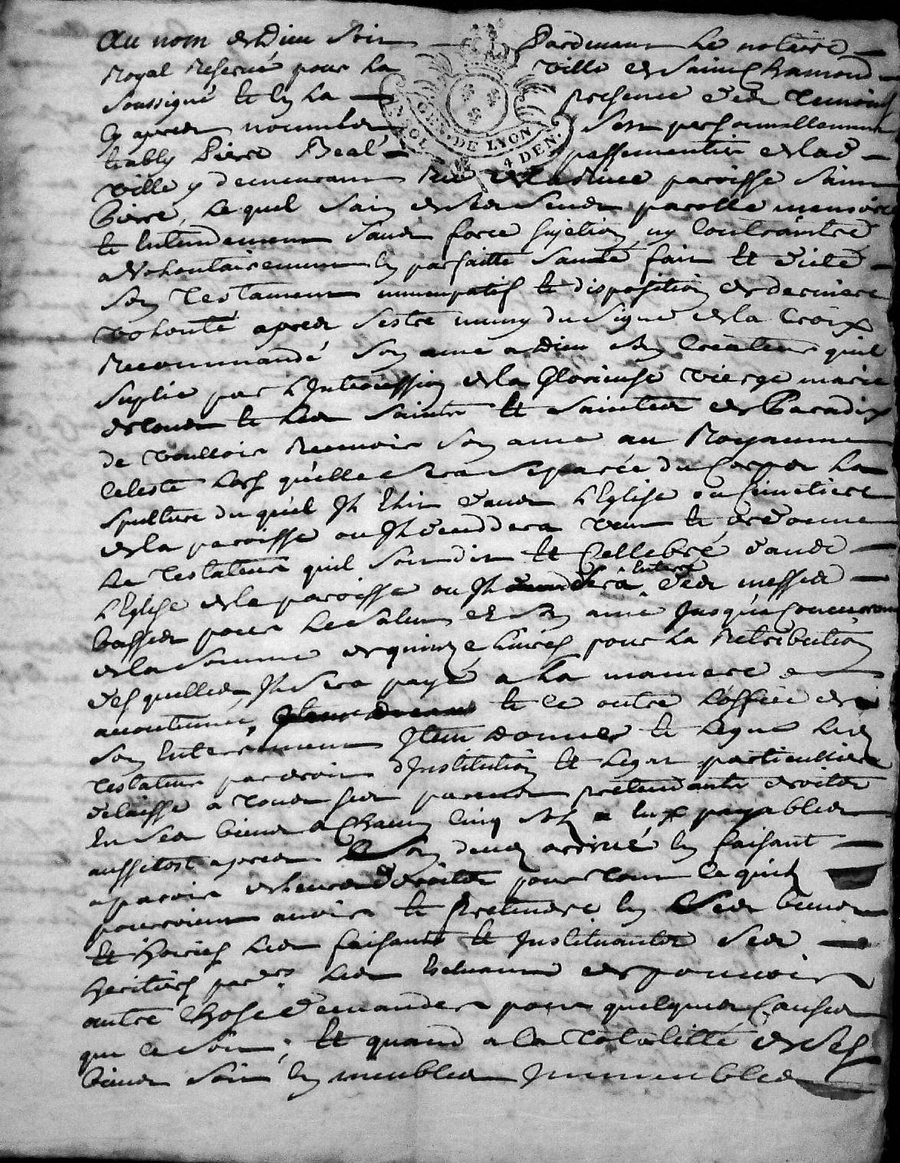 Au nom de Dieu soit Pardevant le notaire
Royal Reservé pour la ville de Saint Chamond
soussigné et en la presence des temoins
cy apres nommés s'est personnellement
etably Pierre Real passementier de lad
ville y demeurant rue paroisse Saint
Pierre, lequel sain de ses sens parolle memoire
et Entendement sans force sujetion ny Contrainte
a Volontairement en parfaitte Santé fait et dicté
son testament nuncupatif et disposition de derniere
volonté apres s'estre muny du signe de la Croix
Recommandé son ame a Dieu son Createur quil
suplie par L'Intercession de la Glorieuse vierge marie
de tous et les Saints et Saintes de Paradix
de voulloir Recevoir son ame au Royaume
Celeste lors qu'elle sera separée du Corps la
spulture duquél Jl Elit dans L'Eglise ou Cimetiere
de la paroisse ou Jl decedera veut et ordonne
Le testateur quil soit dit et Cellebré dans
L'Eglise de la paroisse ou Jl sera Enterré des messes
basses pour le salut de son ame Jusqu'a Concurrance
de la somme de quinze livres pour la Retribution
desquelles, Jl sera payé a la maniere
accoutumée, et ce outre L'office de
son Enterrement Jtem donne et legue led
testateur par droit d'Institution et legat particulliere
delaisse a tous ses parents prétendants droits
En ses biens a Chacun Cinq sols a Eux payables
aussitost apres son deces arrivé En faisant
aparoir de leurs droits pour tout ce quil
pourroient avoir et Prétendre En Ses biens
et Hoiries les faisants et Instituants ses
heritiers par[ers] les privant de pouvoir
autre chose demander pour quelques Causes
que ce soit; Et quand a la totalitté de ses
biens soit En meubles Jmmeubles
GEN. DE LYON
4 DEN.